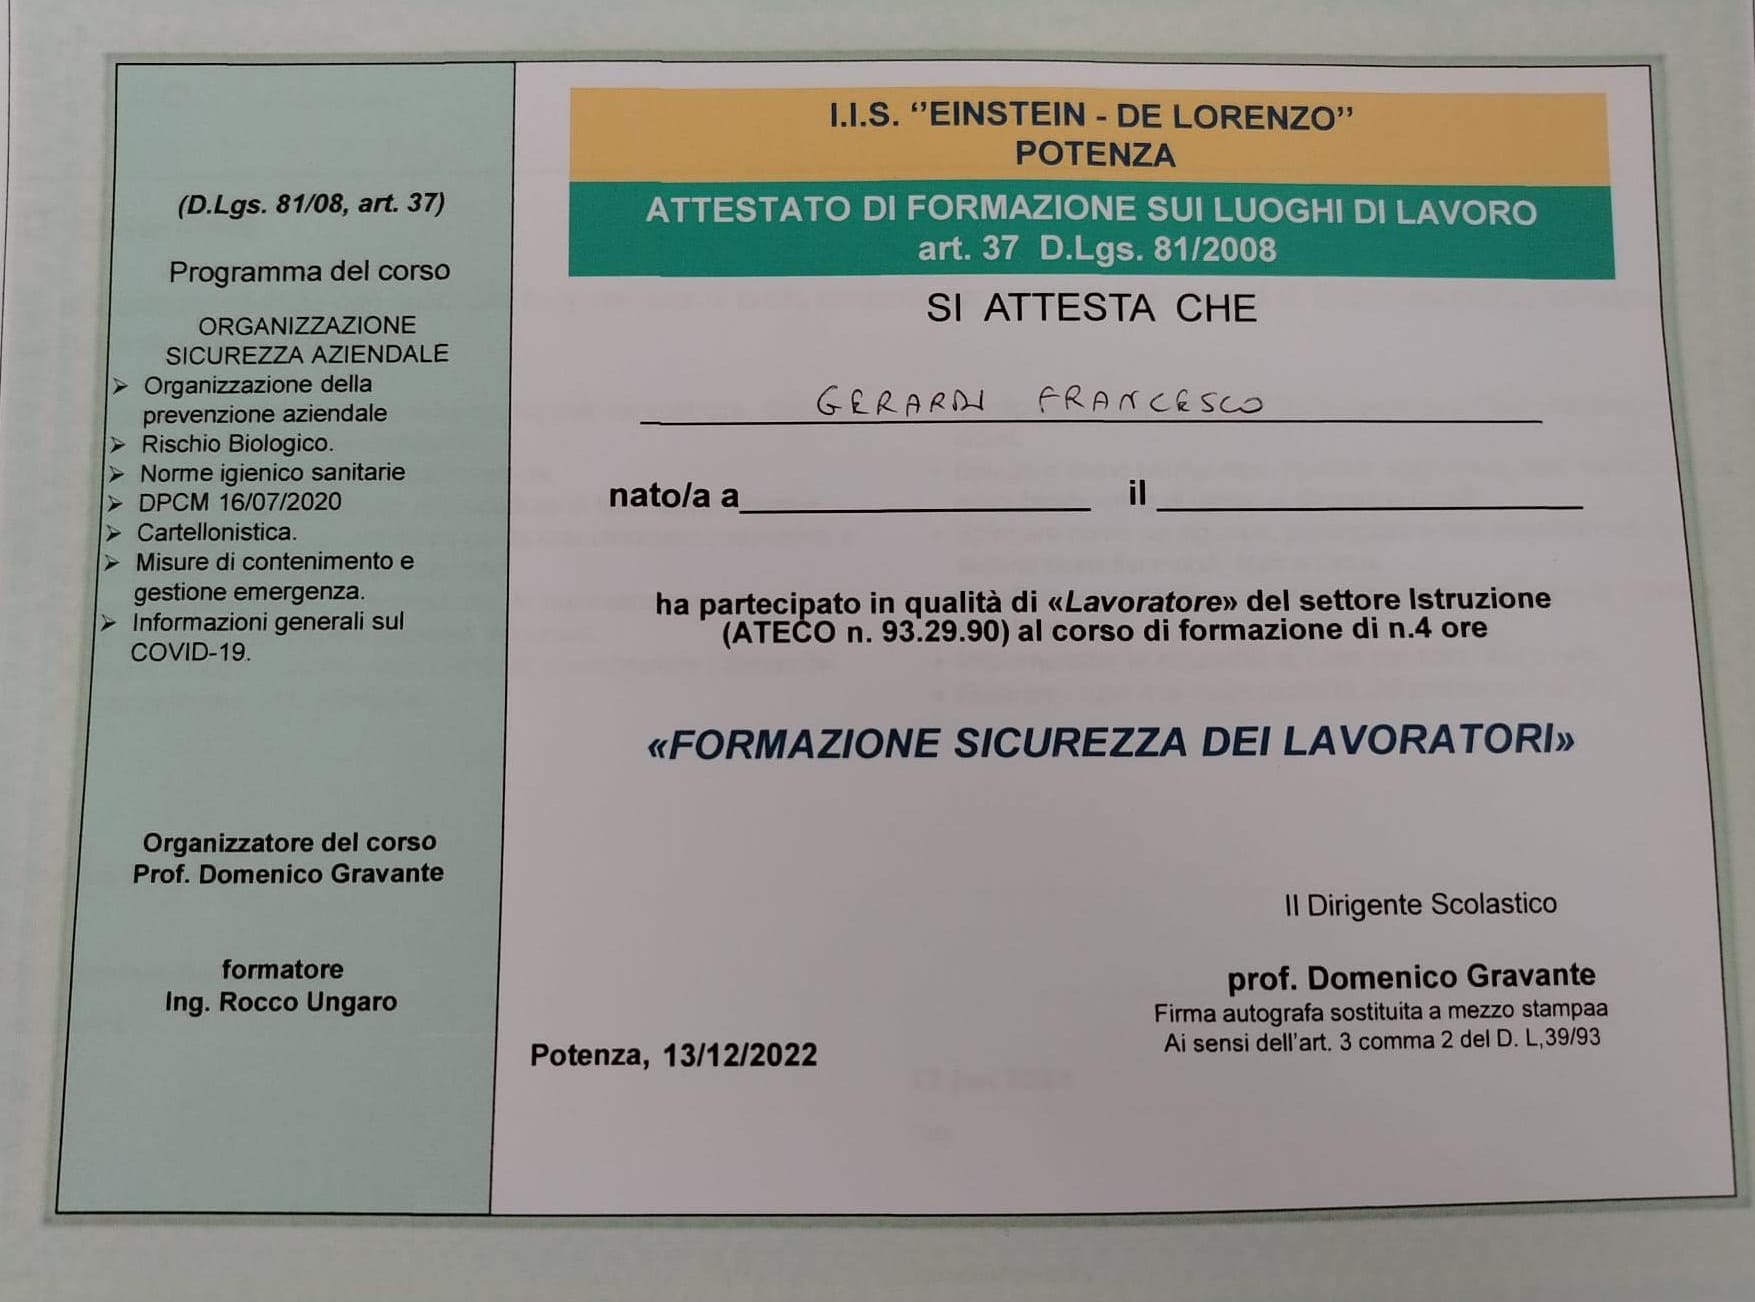 (D.Lgs. 81/08, art. 37)
Programma del corso
ORGANIZZAZIONE
SICUREZZA AZIENDALE
➢ Organizzazione della
prevenzione aziendale
➢ Rischio Biologico.
➢ Norme igienico sanitarie
➢ DPCM 16/07/2020
➢ Cartellonistica.
➢ Misure di contenimento e
gestione emergenza.
➢ Informazioni generali sul
COVID-19.
Organizzatore del corso
Prof. Domenico Gravante
formatore
Ing. Rocco Ungaro
I.I.S. ‘’EINSTEIN - DE LORENZO’’
POTENZA
ATTESTATO DI FORMAZIONE SUI LUOGHI DI LAVORO
art. 37 D.Lgs. 81/2008
SI ATTESTA CHE
GERARDI FRANCESCO
nato/a a il
ha partecipato in qualità di «Lavoratore» del settore Istruzione
(ATECO n. 93.29.90) al corso di formazione di n.4 ore
«FORMAZIONE SICUREZZA DEI LAVORATORI»
Il Dirigente Scolastico
prof. Domenico Gravante
Firma autografa sostituita a mezzo stampaa
Ai sensi dell’art. 3 comma 2 del D. L,39/93
Potenza, 13/12/2022